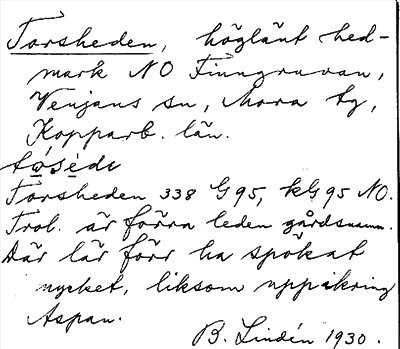 Torsheden, höglänt hed-
mark NO Finngruvan,
Venjans sn, Mora tg,
Kopparb. län.
Torsheden 338 G95, kG95 NO.
Trol. är förra leden gårdsnamn.
Där lär förr ha spökat
mycket, liksom uppåkring
Aspan.
B. Lindén 1930.